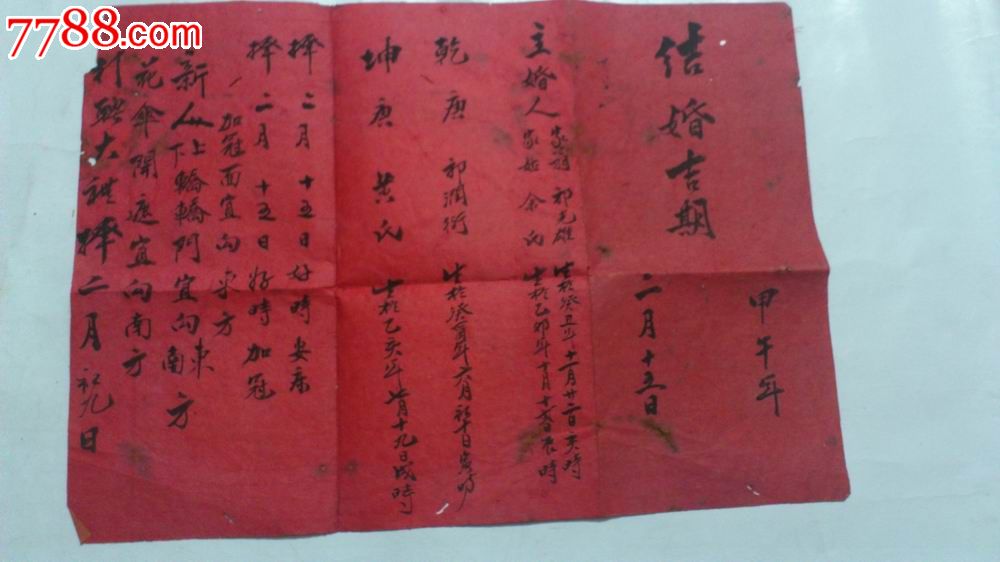 7788.com
收藏
甲午年
二月十五日
结婚吉期
主婚人 家 祁光雄 生於癸丑年十一月廿二日亥時
家 余氏 生於乙卯年十月十六日辰時
乾庚 祁潤衍 生於癸酉年六月初十日 時
坤庚 黄氏 生於乙亥年 月十九日戌時
择二月十五日好時安床
择二月十五日好時加冠
加冠面宜向东方
新人上轎轎門宜向東
下 南方
花傘開遮宜向南方
大礼择二月初九日